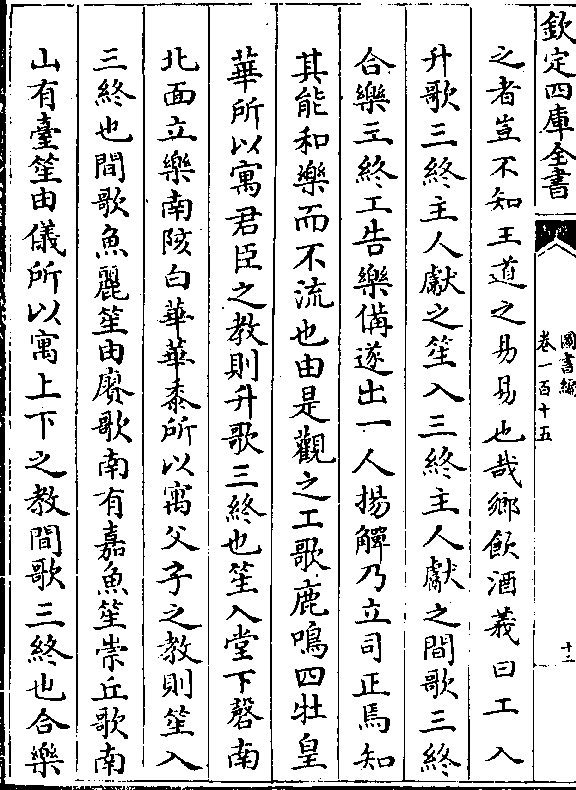 欽定四庫全書
圖書編
卷一百十五
十二
之者豈不知王道之易易也哉鄉飲酒義曰工入
升歌三終主人獻之笙入三終主人獻之間歌三終
合樂三終工告樂備遂出一人揚觶乃立司正焉知
其能和樂而不流也由是觀之工歌鹿鳴四牡皇
華所以寓君臣之教則升歌三終也笙入堂下磬南
北面立樂南陔白華華黍所以寓父子之教則笙入
三終也間歌魚麗笙由庚歌南有嘉魚笙崇丘歌南
山有臺笙由儀所以寓上下之教間歌三終也合樂